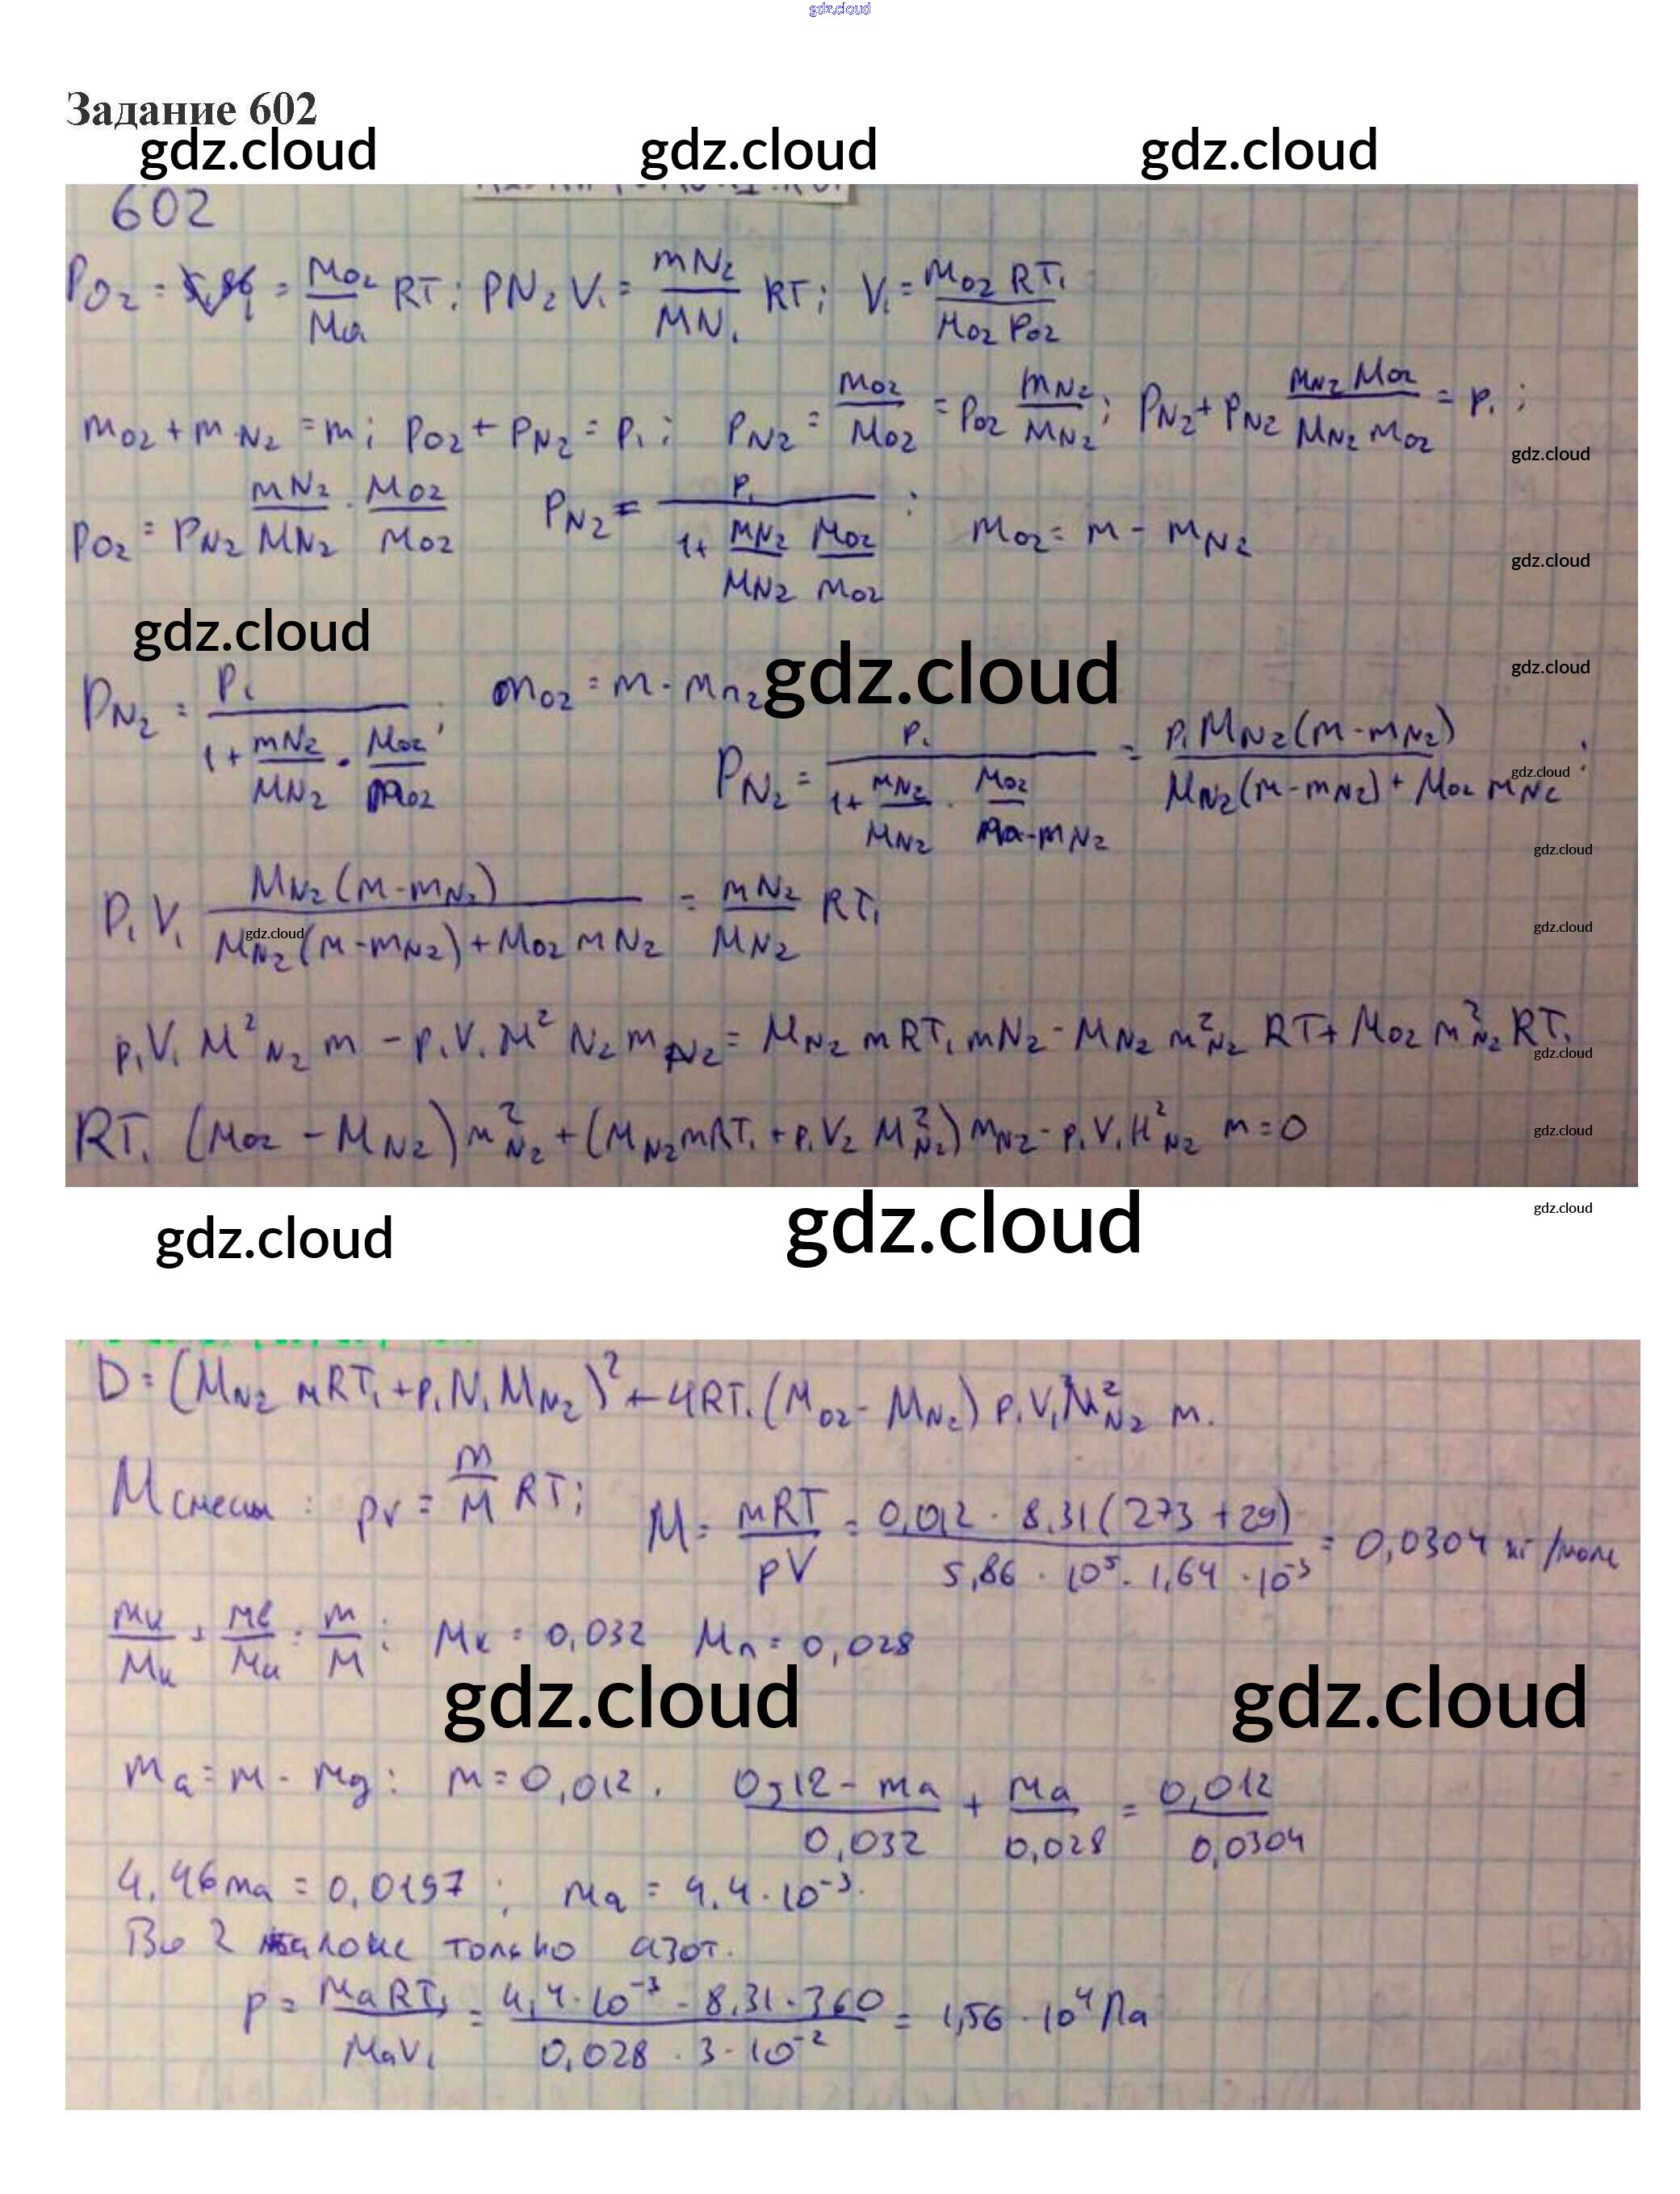 gdz.cloud
Задание 602
gdz.cloud gdz.cloud gdz.cloud
602
P_O2 = = M_O2/Ma RT; PN2 V1 = mN2/MN1 RT; V1 = M_O2 RT1 / M_O2 P_O2
m_O2 + m_N2 = m; p_O2 + p_N2 = p1; p_N2 = m_O2/M_O2 = p_O2 m_N2/M_N2; p_N2 + p_N2 m_N2 M_O2 / M_N2 m_O2 = p1;
gdz.cloud
p_O2 = p_N2 mN2/MN2 · M_O2/m_O2 P_N2 = p1 / (1+ m_N2/M_N2 M_O2/m_O2); m_O2 = m - m_N2
gdz.cloud
gdz.cloud
gdz.cloud gdz.cloud
P_N2 = P1 / (1+ mN2/MN2 · M_O2/m_O2); m_O2 = m - m_n2
P_N2 = P1 / (1+ m_N2/M_N2 · M_O2/m-m_N2) = p1 M_N2 (m-m_N2) / M_N2 (m-m_N2) + M_O2 m_N2;
gdz.cloud
gdz.cloud
P1 V1 M_N2 (m-m_N2) / M_N2 (m-m_N2) + M_O2 m N2 = m N2 / M N2 RT1
gdz.cloud gdz.cloud
p1 V1 M²_N2 m - p1 V1 M² N2 m_N2 = M_N2 m RT1 mN2 - M_N2 m²_N2 RT + M_O2 m²_N2 RT1
gdz.cloud
RT1 (M_O2 - M_N2) m²_N2 + (M_N2 m RT1 + p1 V2 M²_N2) m_N2 - p1 V1 M²_N2 m = 0
gdz.cloud
gdz.cloud gdz.cloud gdz.cloud
D = (M_N2 mRT1 + p1 N1 M_N2)² + 4RT1 (M_O2 - M_N2) p1 V1 M²_N2 m.
M смеси : pv = m/M RT; M = mRT/pV = 0,012 · 8,31 (273 + 29) / 5,86 · 10⁵ · 1,64 · 10⁻³ = 0,0304 кг/моль
mк/Mк + mв/Mк = m/M; Mк = 0,032 Mп = 0,028
gdz.cloud gdz.cloud
ma = m - mg : m = 0,012. 0,12 - ma / 0,032 + ma / 0,028 = 0,012 / 0,0304
4,46 ma = 0,0197; ma = 4,4 · 10⁻³.
Во 2 балоне только азот.
p = maRT1 / MaV1 = 4,4 · 10⁻³ · 8,31 · 360 / 0,028 · 3 · 10⁻² = 1,56 · 10⁴ Па